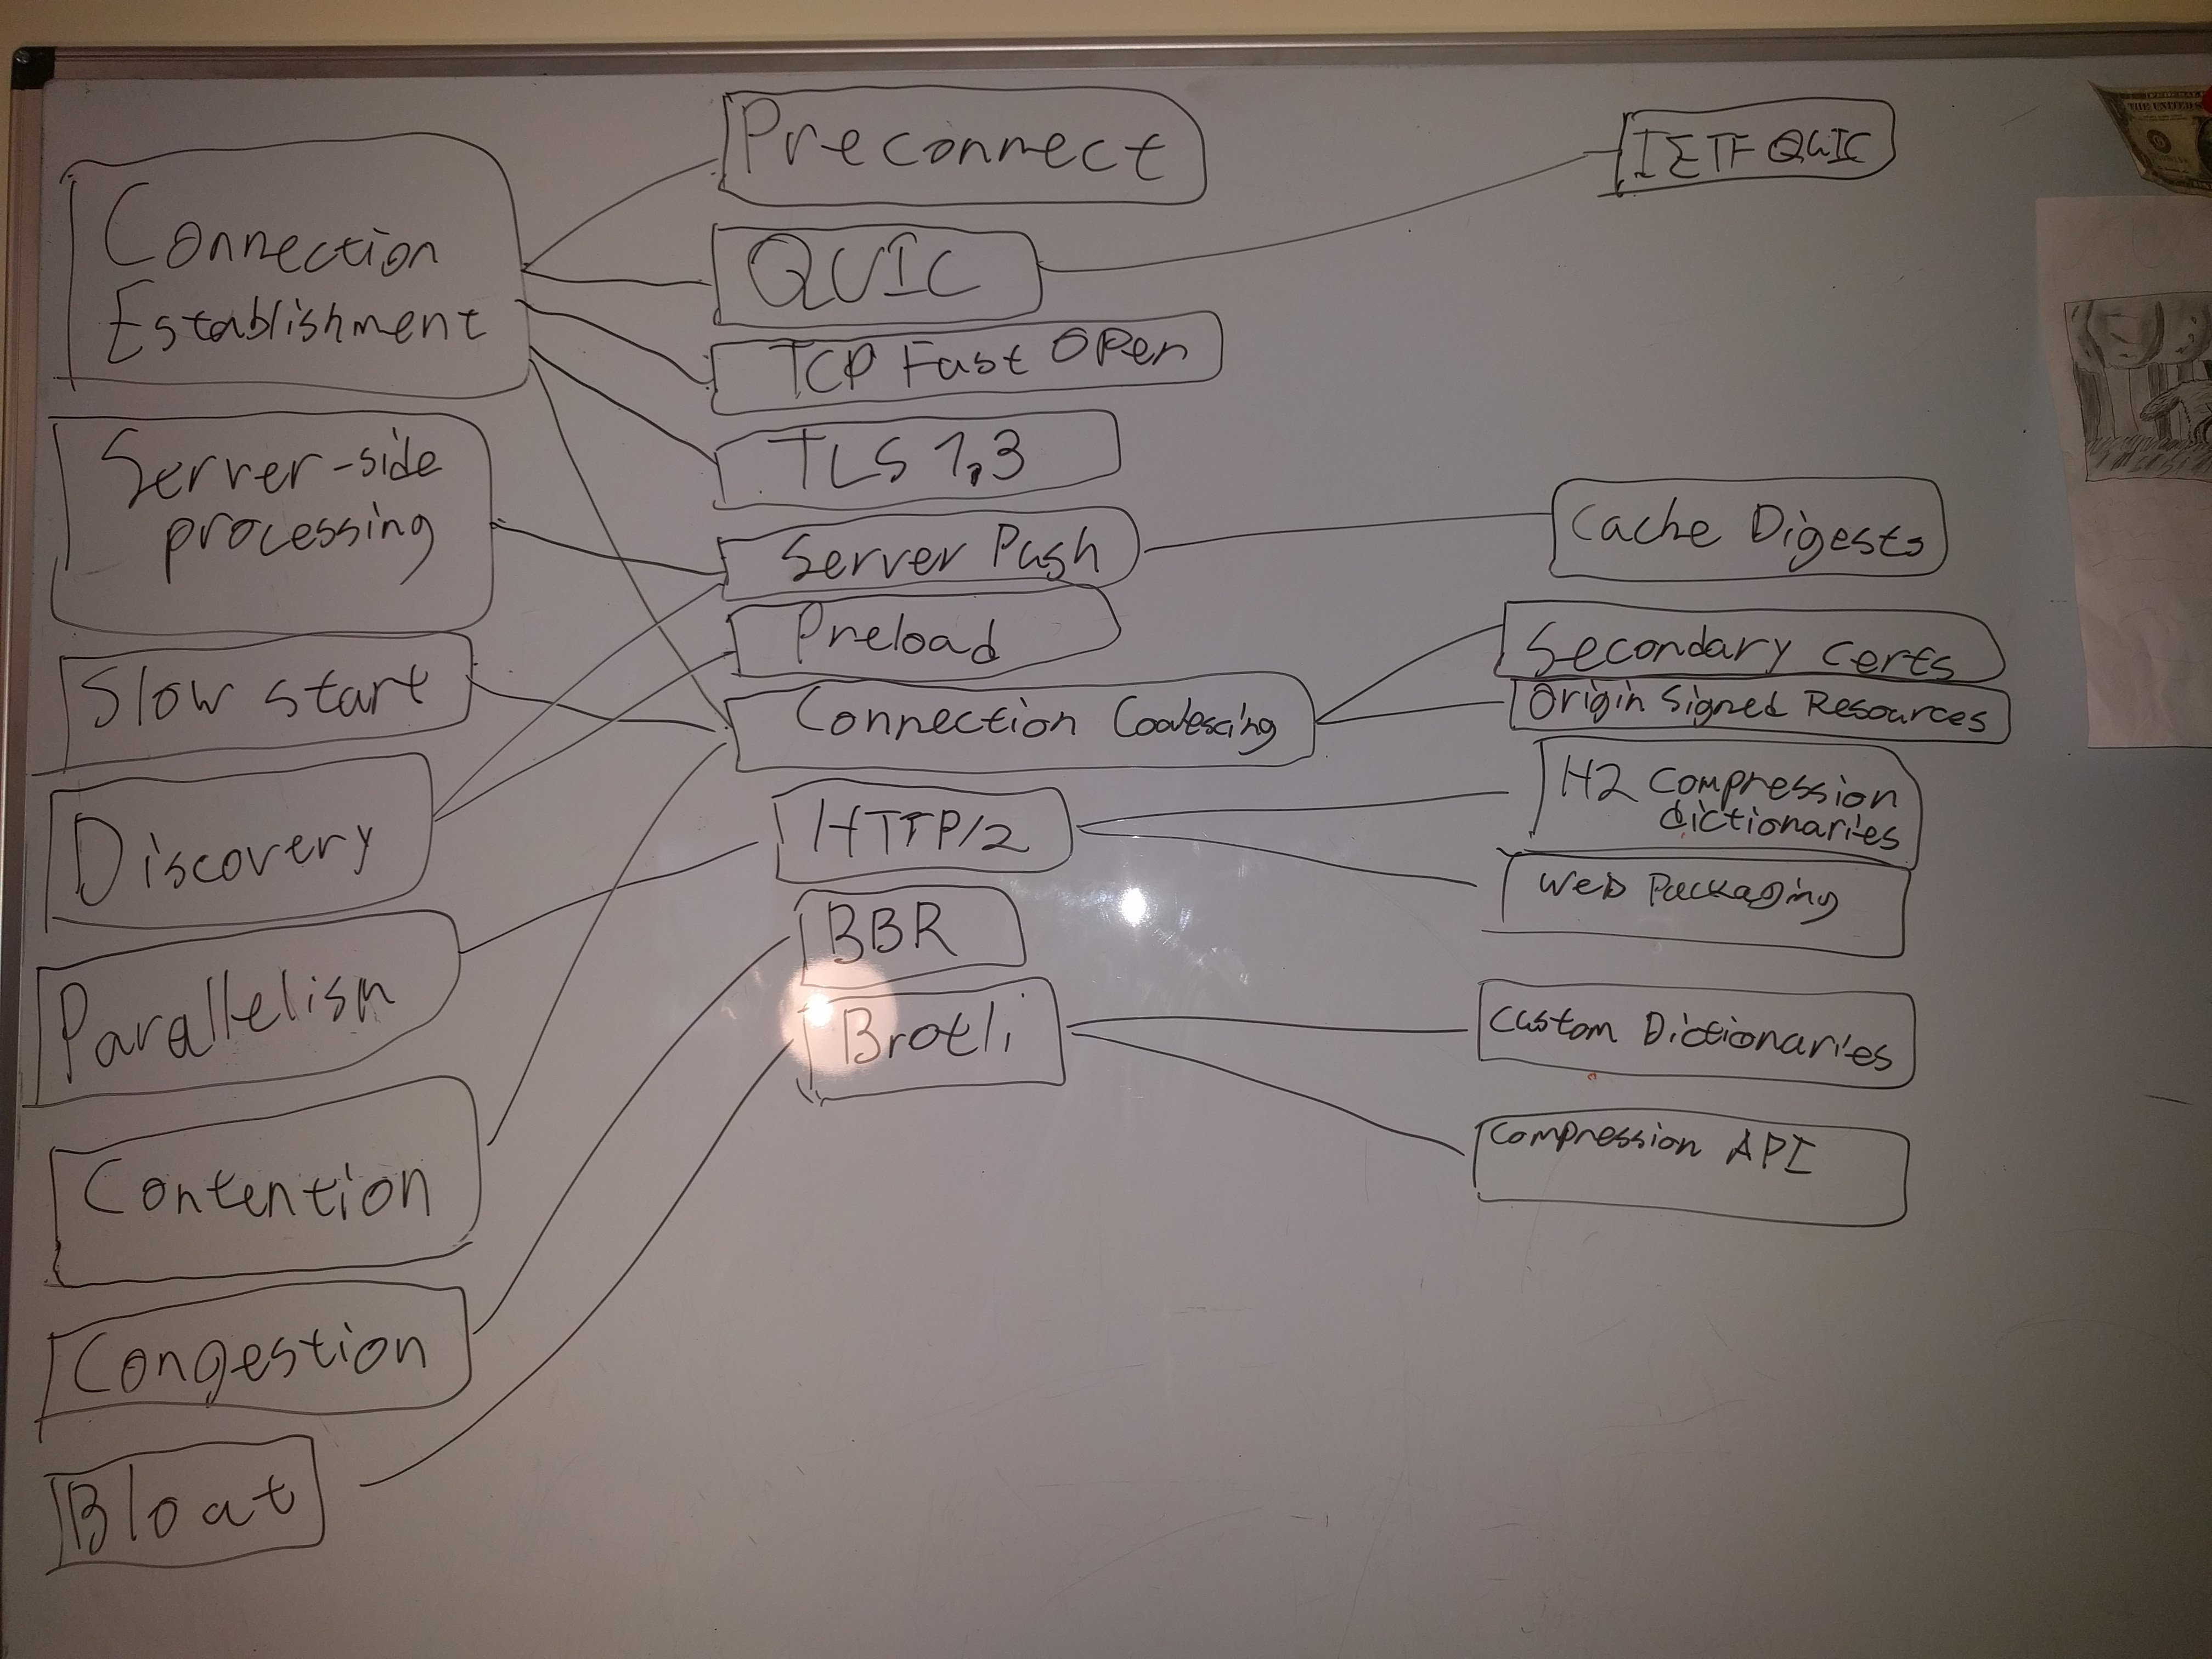 Connection
Establishment
Server-side
processing
Slow start
Discovery
Parallelism
Contention
Congestion
Bloat
Preconnect
QUIC
TCP Fast Open
TLS 1,3
Server Push
Preload
Connection Coalescing
HTTP/2
BBR
Brotli
IETF QUIC
Cache Digests
Secondary certs
Origin Signed Resources
H2 Compression
dictionaries
Web Packaging
Custom Dictionaries
Compression API
THE UNITED S